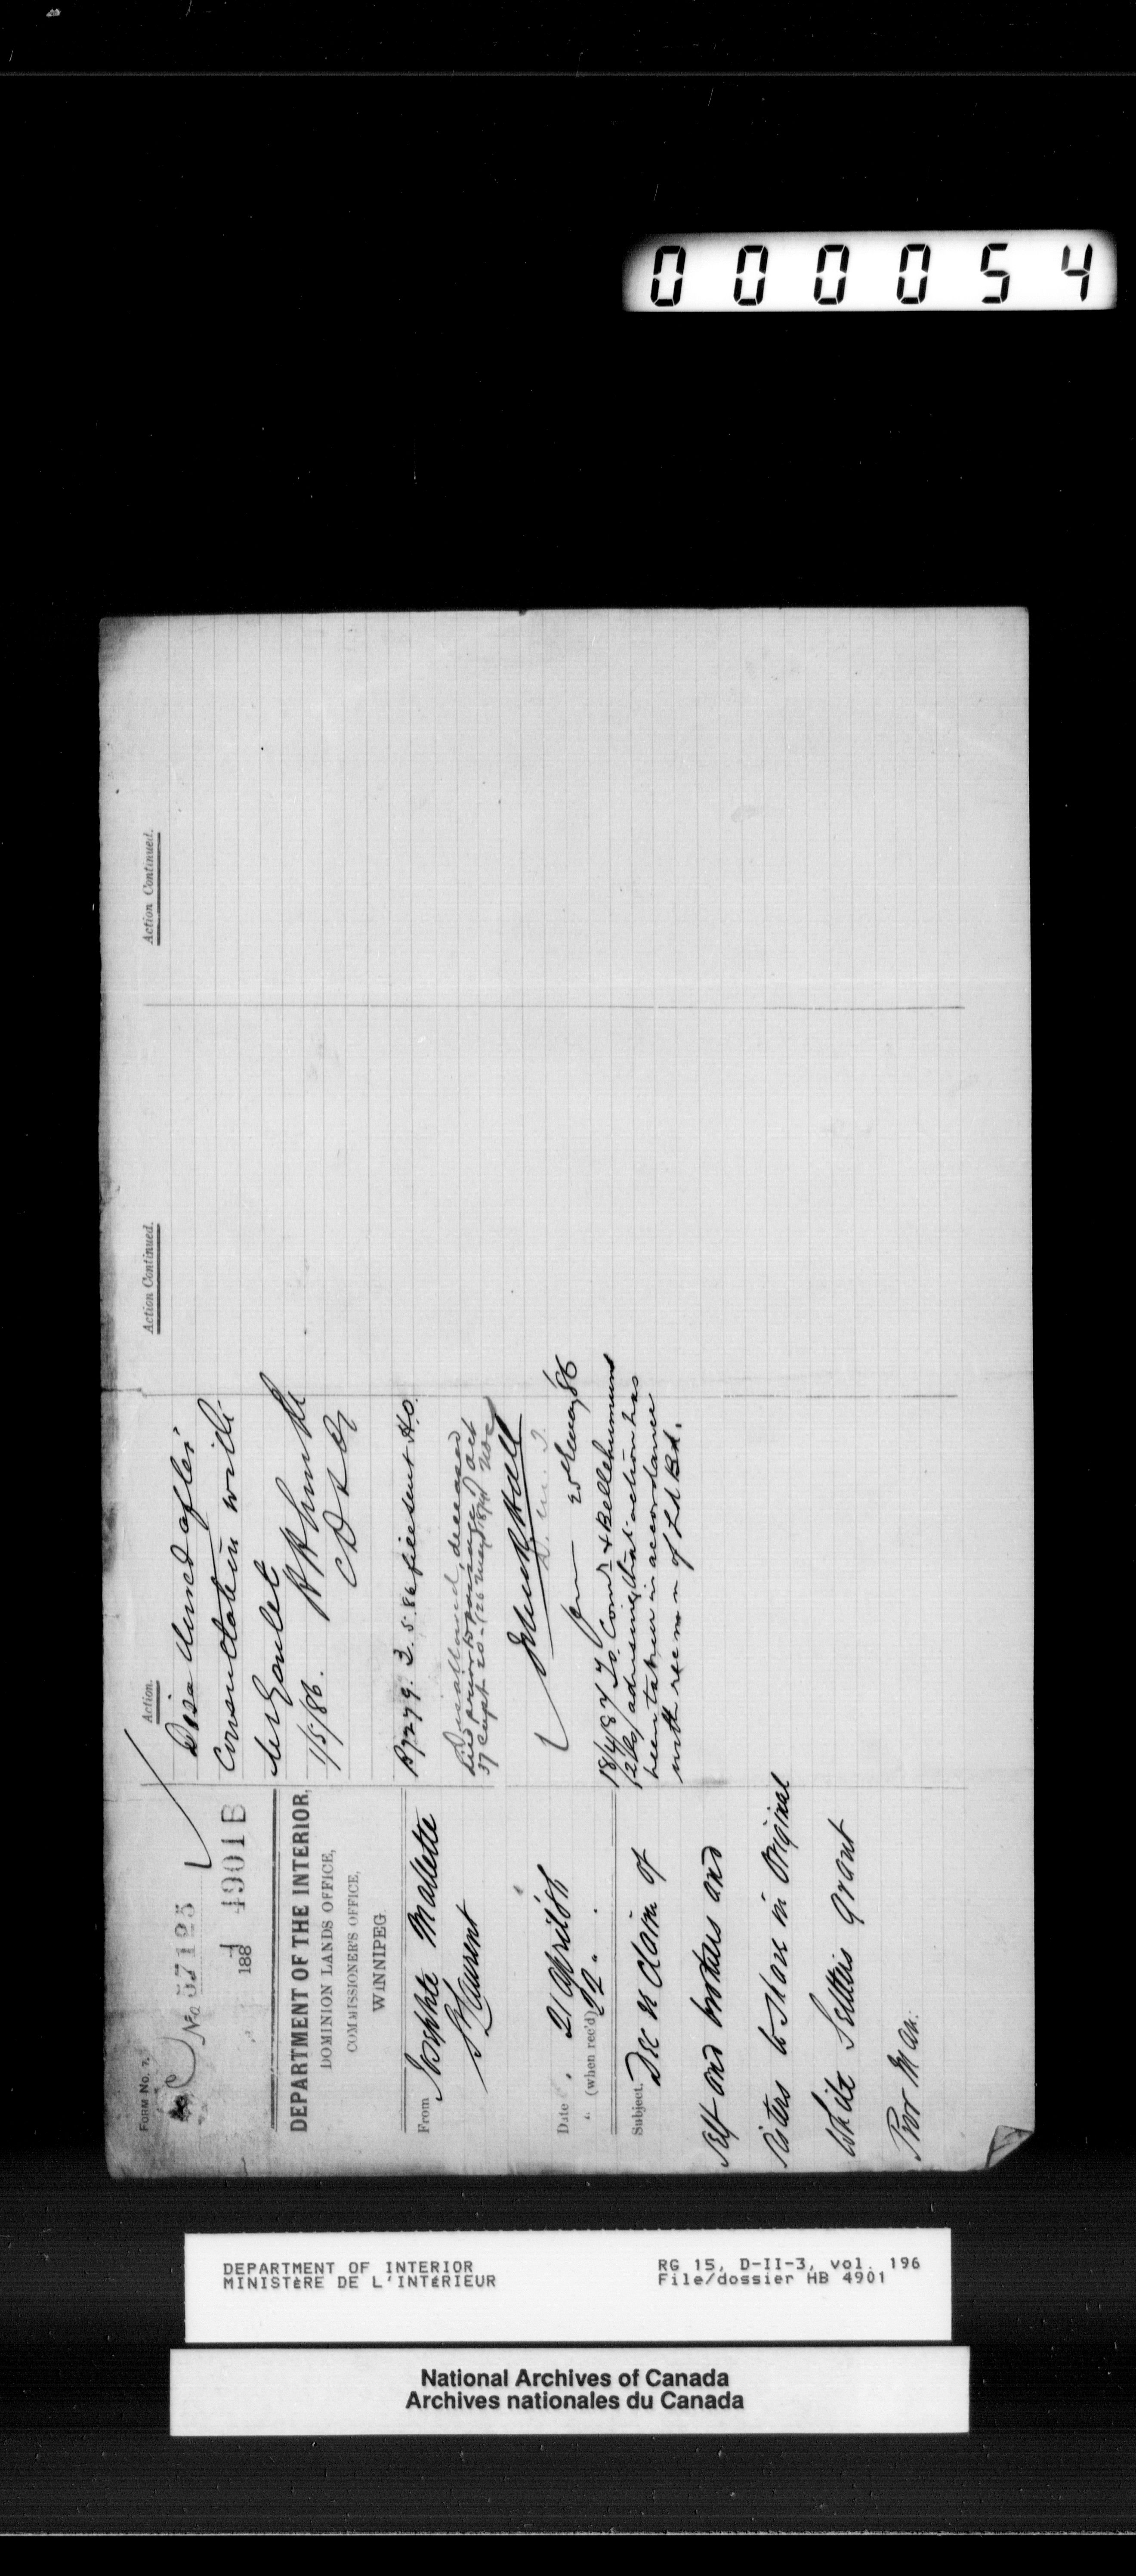 000054
FORM No. 7.
No. 57195
1887 4901 B
DEPARTMENT OF THE INTERIOR,
DOMINION LANDS OFFICE,
COMMISSIONER'S OFFICE,
WINNIPEG.
From Josephte Mallette
St Laurent
Date 21 April 86
" (when rec'd) 22 " .
Subject. Dec re claim of
self and brothers and
sisters to share in original
white settlers grant
Prov Man.
Action.
Disallowed after
consultation with
Mr Goulet
1/5/86.
B7279. 3.5.86 file sent H.O.
Disallowed, deceased
died prior to passage of act
37 Cap 20 - (26 May 1874)
25th May 86
18/4/87 To Comr &
advising that action has
been taken in accordance
with recom n of Ld Bd.
Action Continued.
Action Continued.
DEPARTMENT OF INTERIOR
MINISTÈRE DE L'INTÉRIEUR
RG 15, D-II-3, vol. 196
File/dossier HB 4901
National Archives of Canada
Archives nationales du Canada